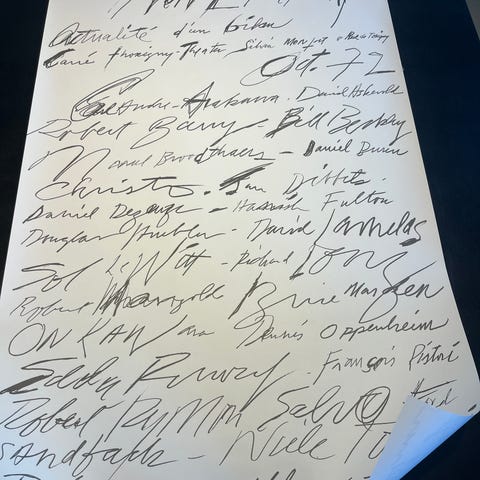 Actualité d'un Bilan
Carré Thorigny - Theatre Silvia Monfort
Oct. 72
Carl Andre - Arakawa. David Askevold
Robert Barry - Bill Beckley
Marcel Broodthaers - Daniel Buren
Christo. Jan Dibbets.
Daniel Dezeuze - Hamish Fulton
Douglas Huebler. David Lamelas
Sol LeWitt - Richard Long
Robert Mangold Brice Marden
ON KAWara Dennis Oppenheim
Edda Renouf - François Ristori
Robert Ryman Salvo Fred
SANDback - Niele To